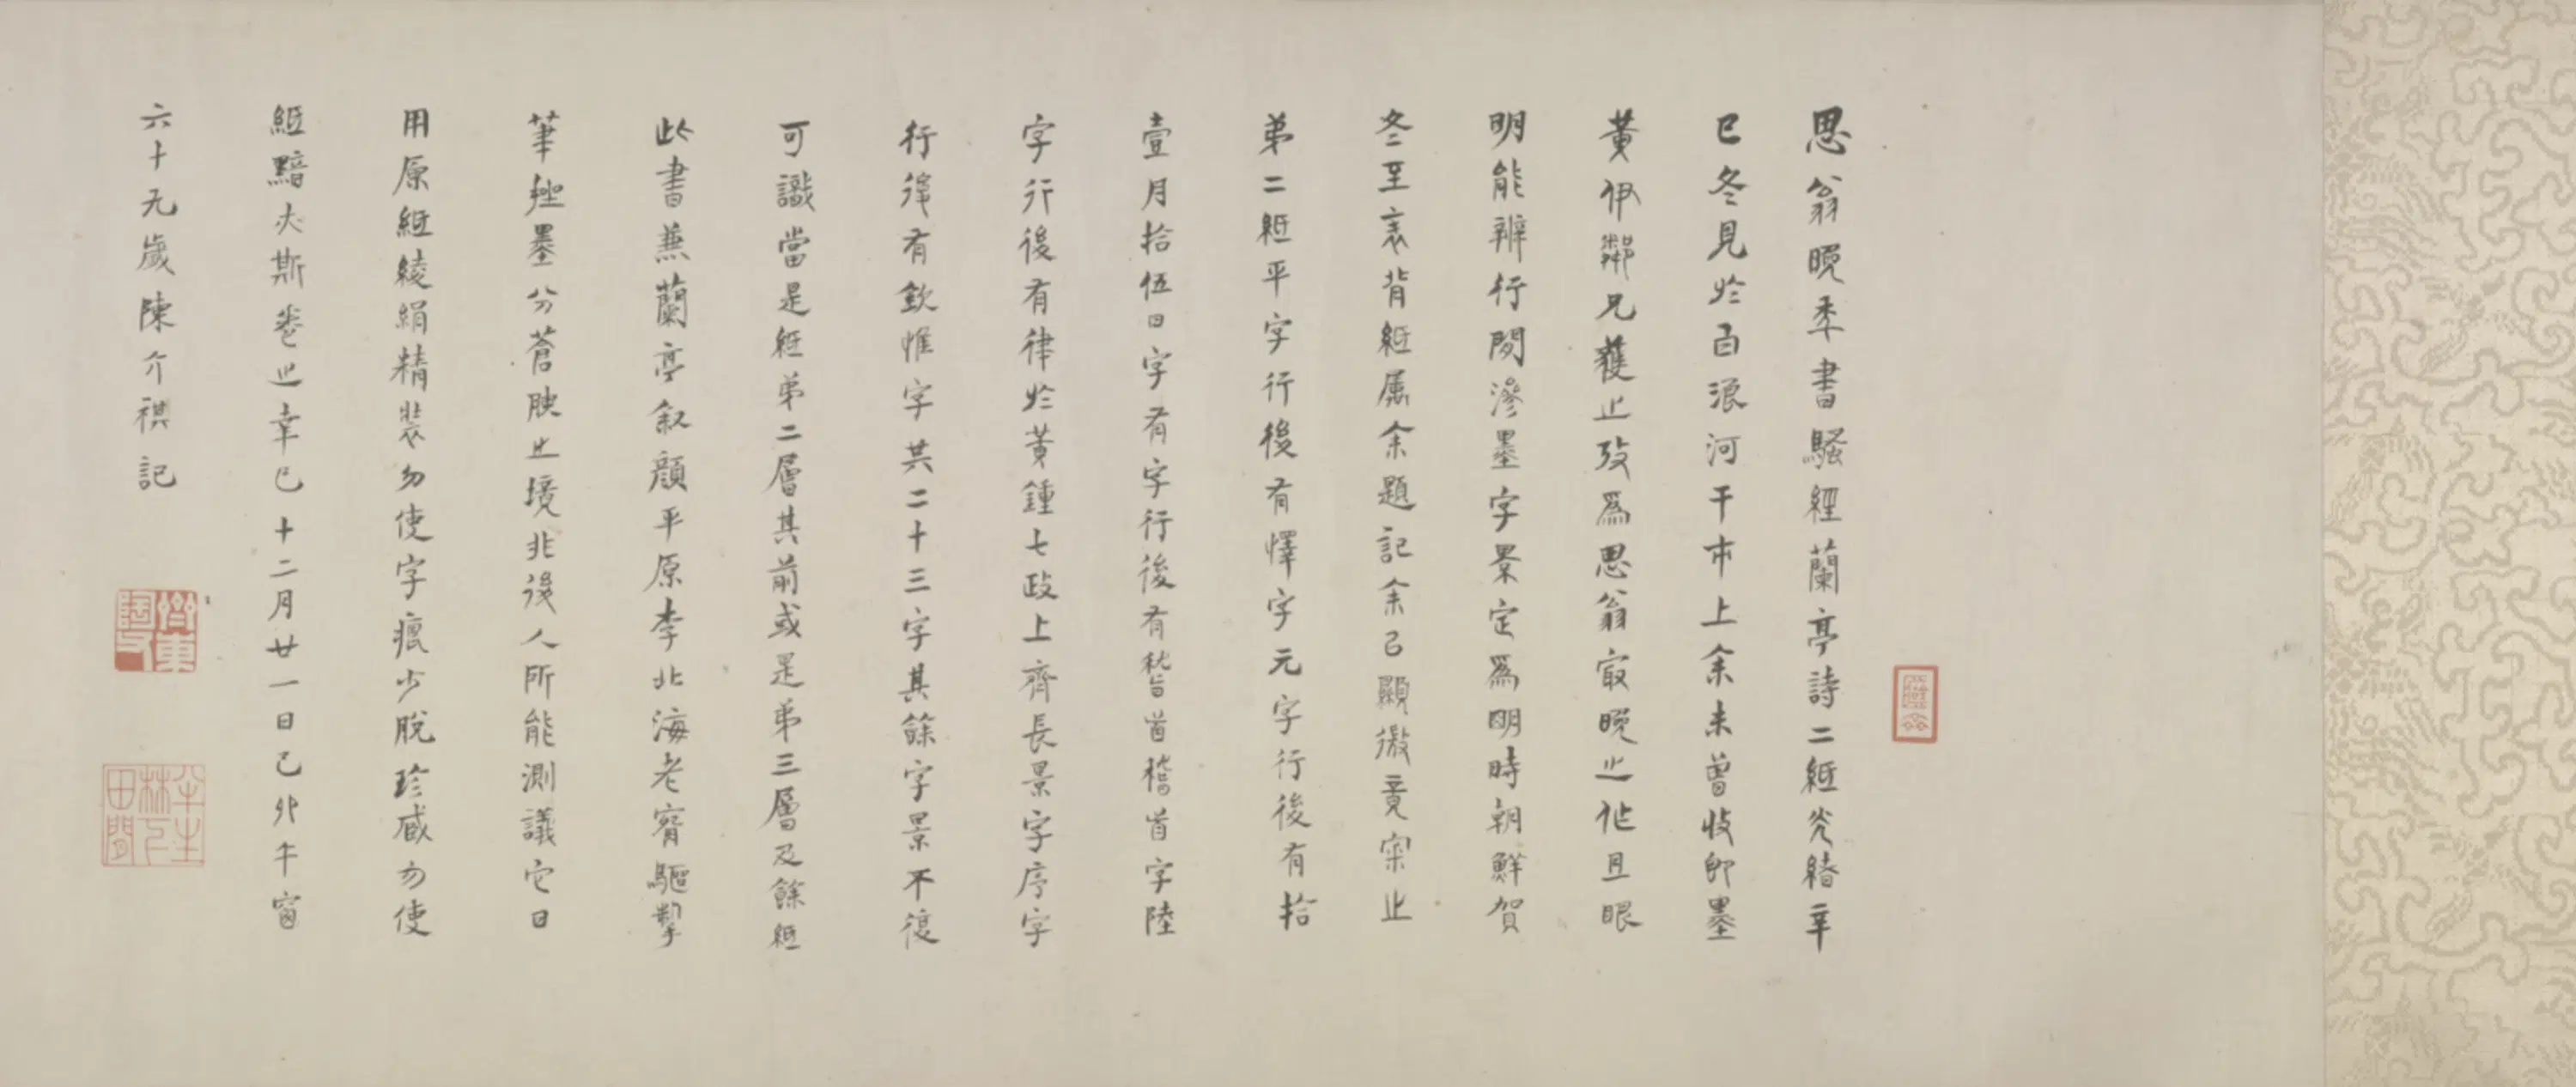 思翁晚年書騷經蘭亭詩二紙光緒辛
巳冬見於白浪河干市上余未曾收即墨
黃伊鄰兄獲之攷為思翁㝡晚之作且眼
明能辨行間滲墨字景定爲明時朝鮮賀
冬至表背紙属余題記余已顯微竟案之
弟二紙平字行後有懌字元字行後有拾
壹月拾伍日字有字行後有嵇首稽首字陸
字行後有律於黃鍾七政上齊長景字序字
行後有欽惟字共二十三字其餘字景不復
可識當是紙弟二層其前或是弟三層及餘紙
此書兼蘭亭叙顏平原李北海老宥驅掣
筆𨌶墨分蒼腴之境非後人所能測議它日
用原紙綾絹精裝勿使字痕少脫珍臧勿使
紙黯夫斯卷之幸巳十二月廿一日己卯午窗
六十九歲陳介祺記
齊東陶父
半生林下田間